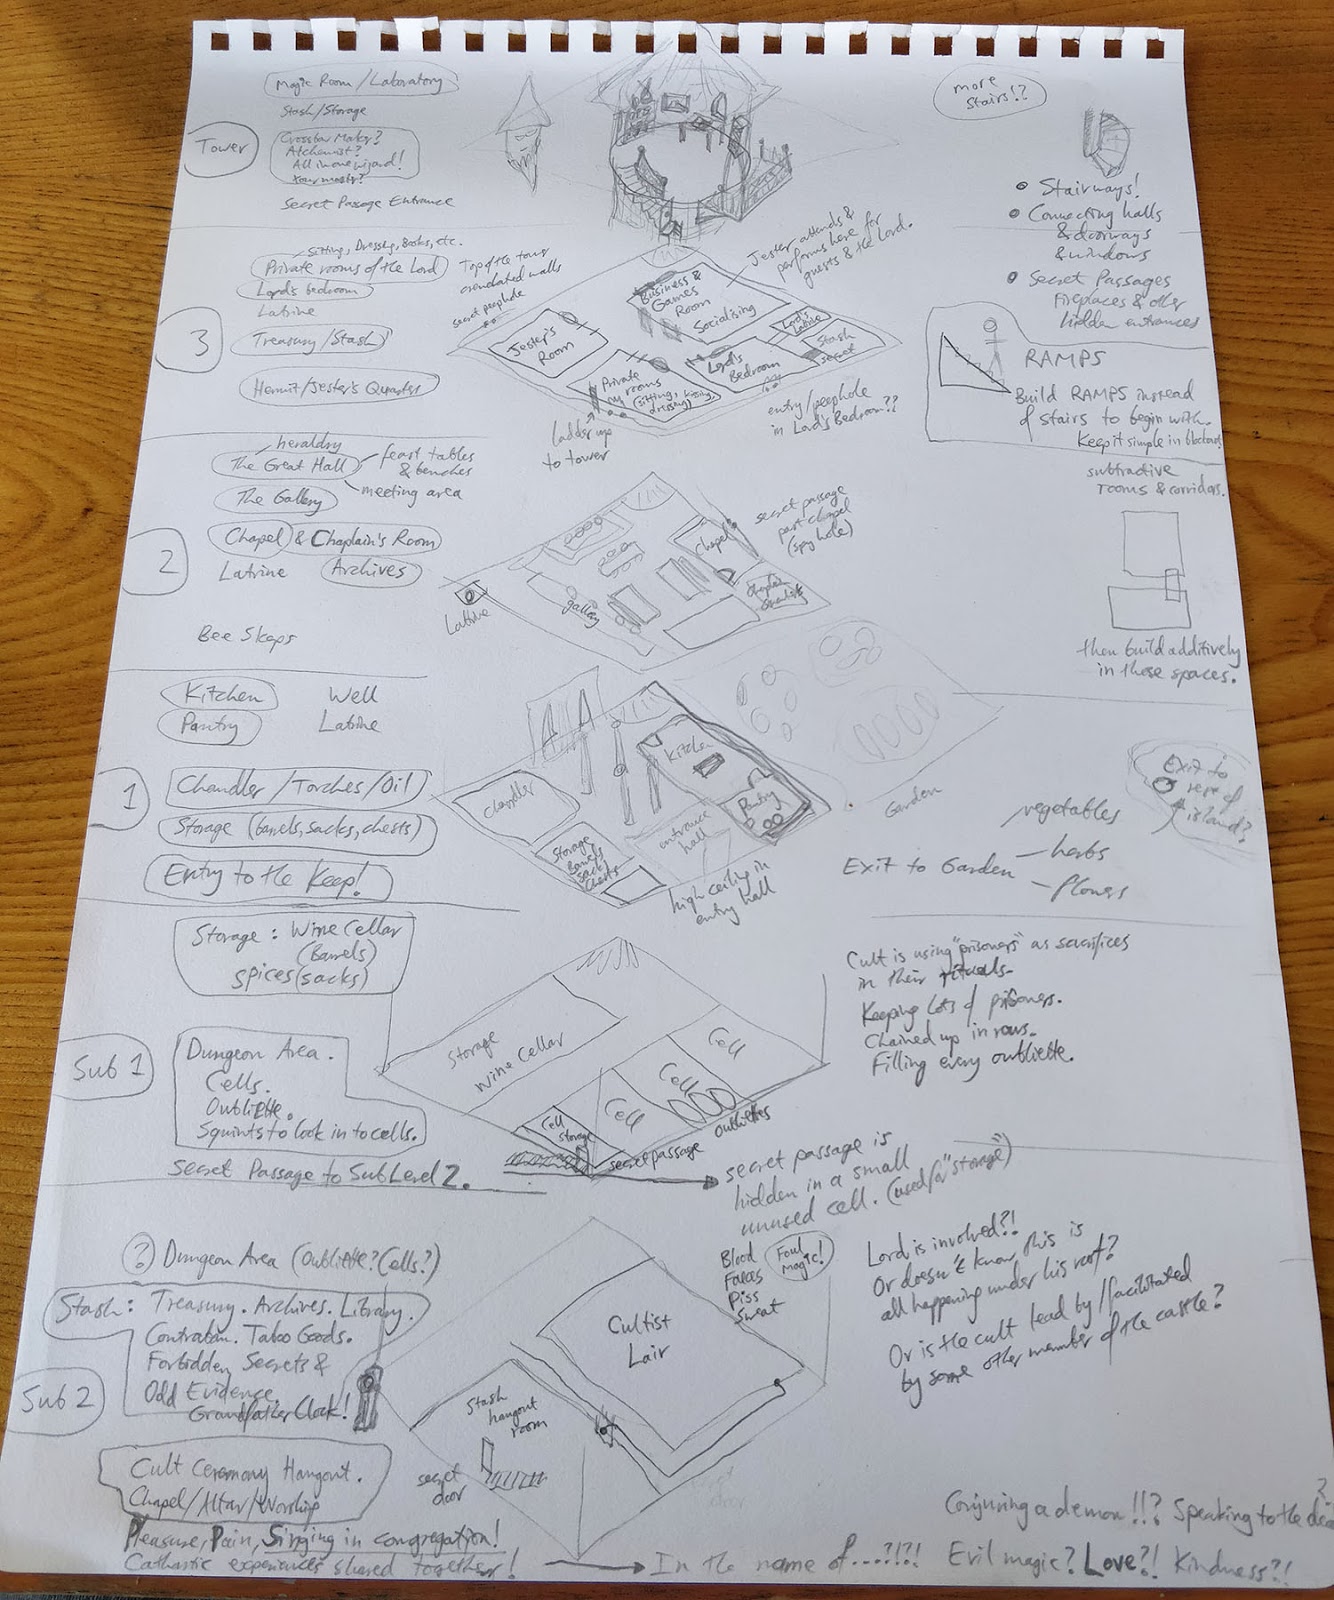 Magic Room / Laboratory
Stash/Storage
Tower
Alchemist?
All in one wizard!
Secret Passage Entrance
more
stairs!?
Stairways!
Connecting halls
& doorways
& windows
Secret Passages
Fireplaces & other
hidden entrances
Sitting, Dressing, Books, etc.
Private rooms of the Lord
Lord's bedroom
Latrine
3
Treasury/Stash
Hermit/Jester's Quarters
Top of the tower
crenelated walls
secret peephole
Jester attends &
performs here for
guests & the Lord.
Business &
Games
Room
Socialising
Jester's
Room
Private
rooms
(sitting,
dressing)
Lord's
Bedroom
Lord's
Latrine
Stash
secret
ladder up
to tower
entry/peephole
in Lord's Bedroom??
RAMPS
Build RAMPS instead
of stairs to begin with.
Keep it simple in blockout!
subtractive
rooms & corridors.
then build additively
in these spaces.
heraldry
The Great Hall
feast tables
& benches
meeting area
The Gallery
2
Chapel & Chaplain's Room
Latrine
Archives
Bee Skeps
Latrine
gallery
Chapel
secret passage
past chapel
(spy hole)
Kitchen
Well
Pantry
Latrine
1
Chandler / Torches / Oil
Storage (barrels, sacks, chests)
Entry to the Keep!
Chandler
Kitchen
Pantry
Storage
Barrels
Sacks
Chests
entrance
hall
high ceiling in
entry hall
Garden
Exit to Garden
vegetables
herbs
flowers
Exit to
rest of
island?
Storage: Wine Cellar
(Barrels)
Spices (sacks)
Sub 1
Dungeon Area.
Cells.
Oubliette.
Squints to look in to cells.
Secret Passage to Sub Level 2.
Storage
Wine Cellar
Cell
Storage
Cell
Cell
Cell
oubliettes
secret passage
secret passage is
hidden in a small
unused cell. (used for "storage")
Cult is using "prisoners" as sacrifices
in their rituals.
Keeping lots of prisoners.
Chained up in rows.
Filling every oubliette.
? Dungeon Area (Oubliette? Cells?)
Stash: Treasury. Archives. Library.
Contraban. Taboo Goods.
Forbidden Secrets &
Odd Evidence.
Grandfather Clock!
Sub 2
Cult Ceremony Hangout.
Chapel/Altar/Worship
Pleasure, Pain, Singing in congregation!
Cathartic experiences shared together!
Cultist
Lair
Stash
hangout
room
secret
door
Blood
Faeces
Piss
Sweat
Foul
Magic!
Lord is involved?!
Or doesn't know this is
all happening under his roof?
Or is the cult lead by/facilitated
by some other member of the castle?
Conjuring a demon!!? Speaking to the
In the name of...?!?! Evil magic? Love?! Kindness?!